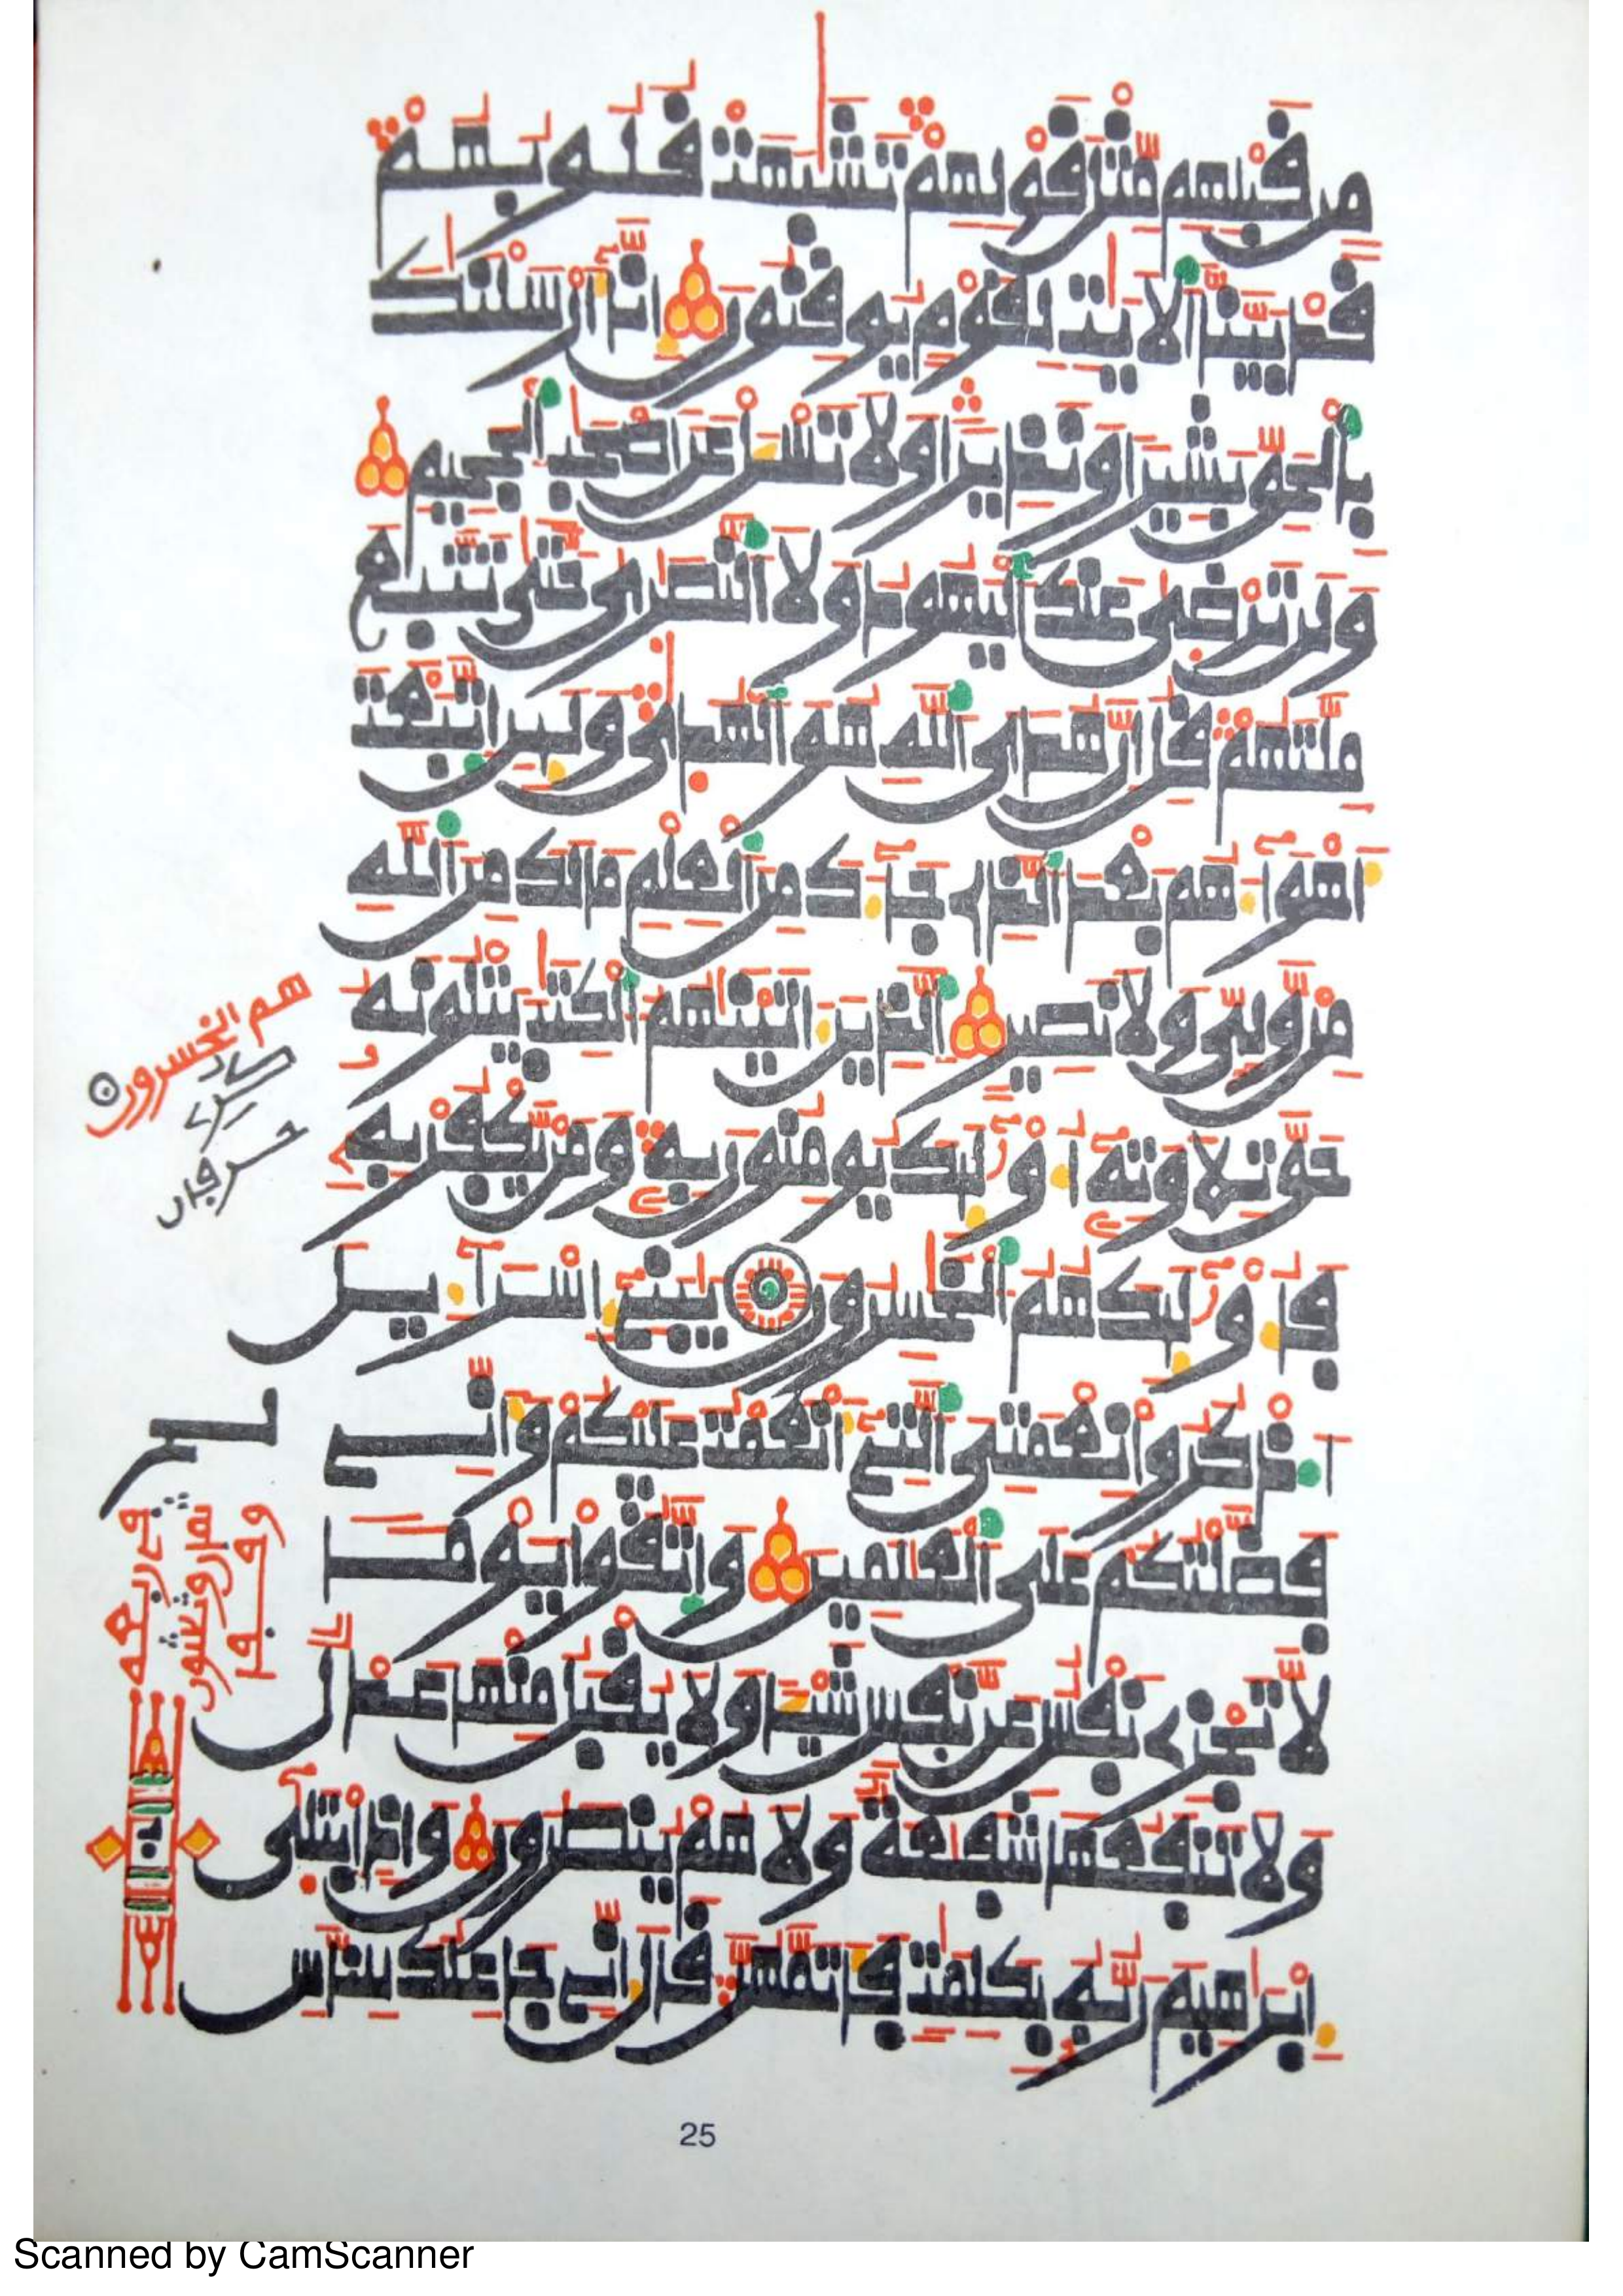 من قبلهم مثل قولهم تشبهت قلوبهم
قد بينا الايت لقوم يوقنون انا ارسلنك
بالحق بشيرا ونذيرا ولا تسل عن اصحب الجحيم
ولن ترضى عنك اليهود ولا النصرى حتى تتبع
ملتهم قل ان هدى الله هو الهدى ولين اتبعت
اهواهم بعد الذي جاك من العلم مالك من الله
من ولي ولا نصير الذين اتينهم الكتب يتلونه
حق تلاوته اوليك يومنون به ومن يكفر به
فاوليك هم الخسرون يبني اسرايل
اذكروا نعمتي التي انعمت عليكم واني
فضلتكم على العلمين واتقوا يوما
لا تجزي نفس عن نفس شيا ولا يقبل منها عدل
ولا تنفعها شفعة ولا هم ينصرون واذ ابتلى
ابرهيم ربه بكلمت فاتمهن قال اني جاعلك للناس
هم الخسرون
25
Scanned by CamScanner